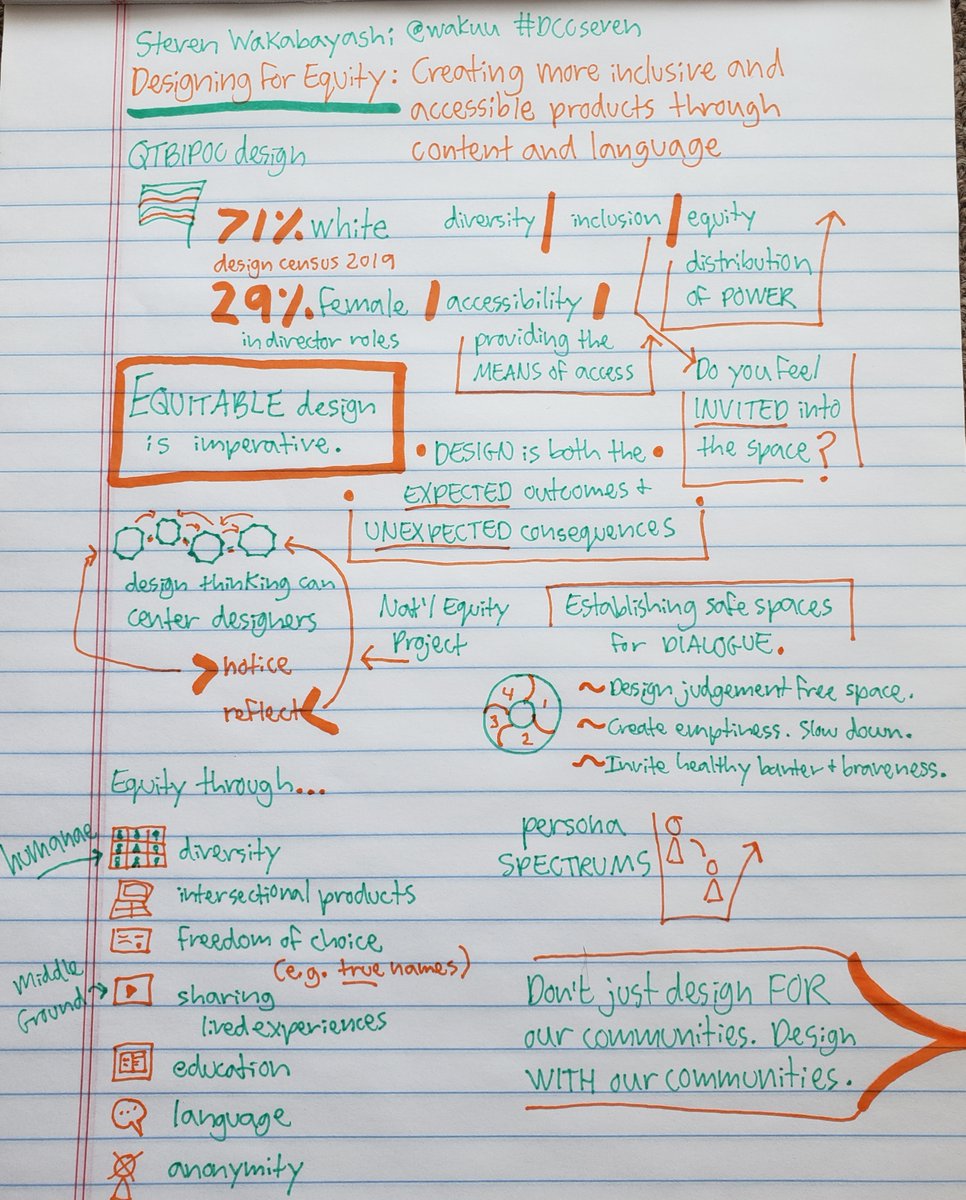 Steven Wakabayashi @wakuu #DCCseven
Designing For Equity: Creating more inclusive and
accessible products through
content and language
QTBIPOC design
71% white
design census 2019
29% female
in director roles
diversity | inclusion | equity
distribution
of POWER
| accessibility |
providing the
MEANS of access
Do you feel
INVITED into
the space?
EQUITABLE design
is imperative.
• DESIGN is both the •
• EXPECTED outcomes + •
UNEXPECTED consequences
design thinking can
center designers
notice
reflect
Nat'l Equity
Project
Establishing safe spaces
for DIALOGUE.
4
1
3
2
~ Design judgement free space.
~ Create emptiness. Slow down.
~ Invite healthy banter + braveness.
Equity through...
humanae
diversity
intersectional products
freedom of choice
(e.g. true names)
Middle
Ground
sharing
lived experiences
education
language
anonymity
persona
SPECTRUMS
Don't just design FOR
our communities. Design
WITH our communities.